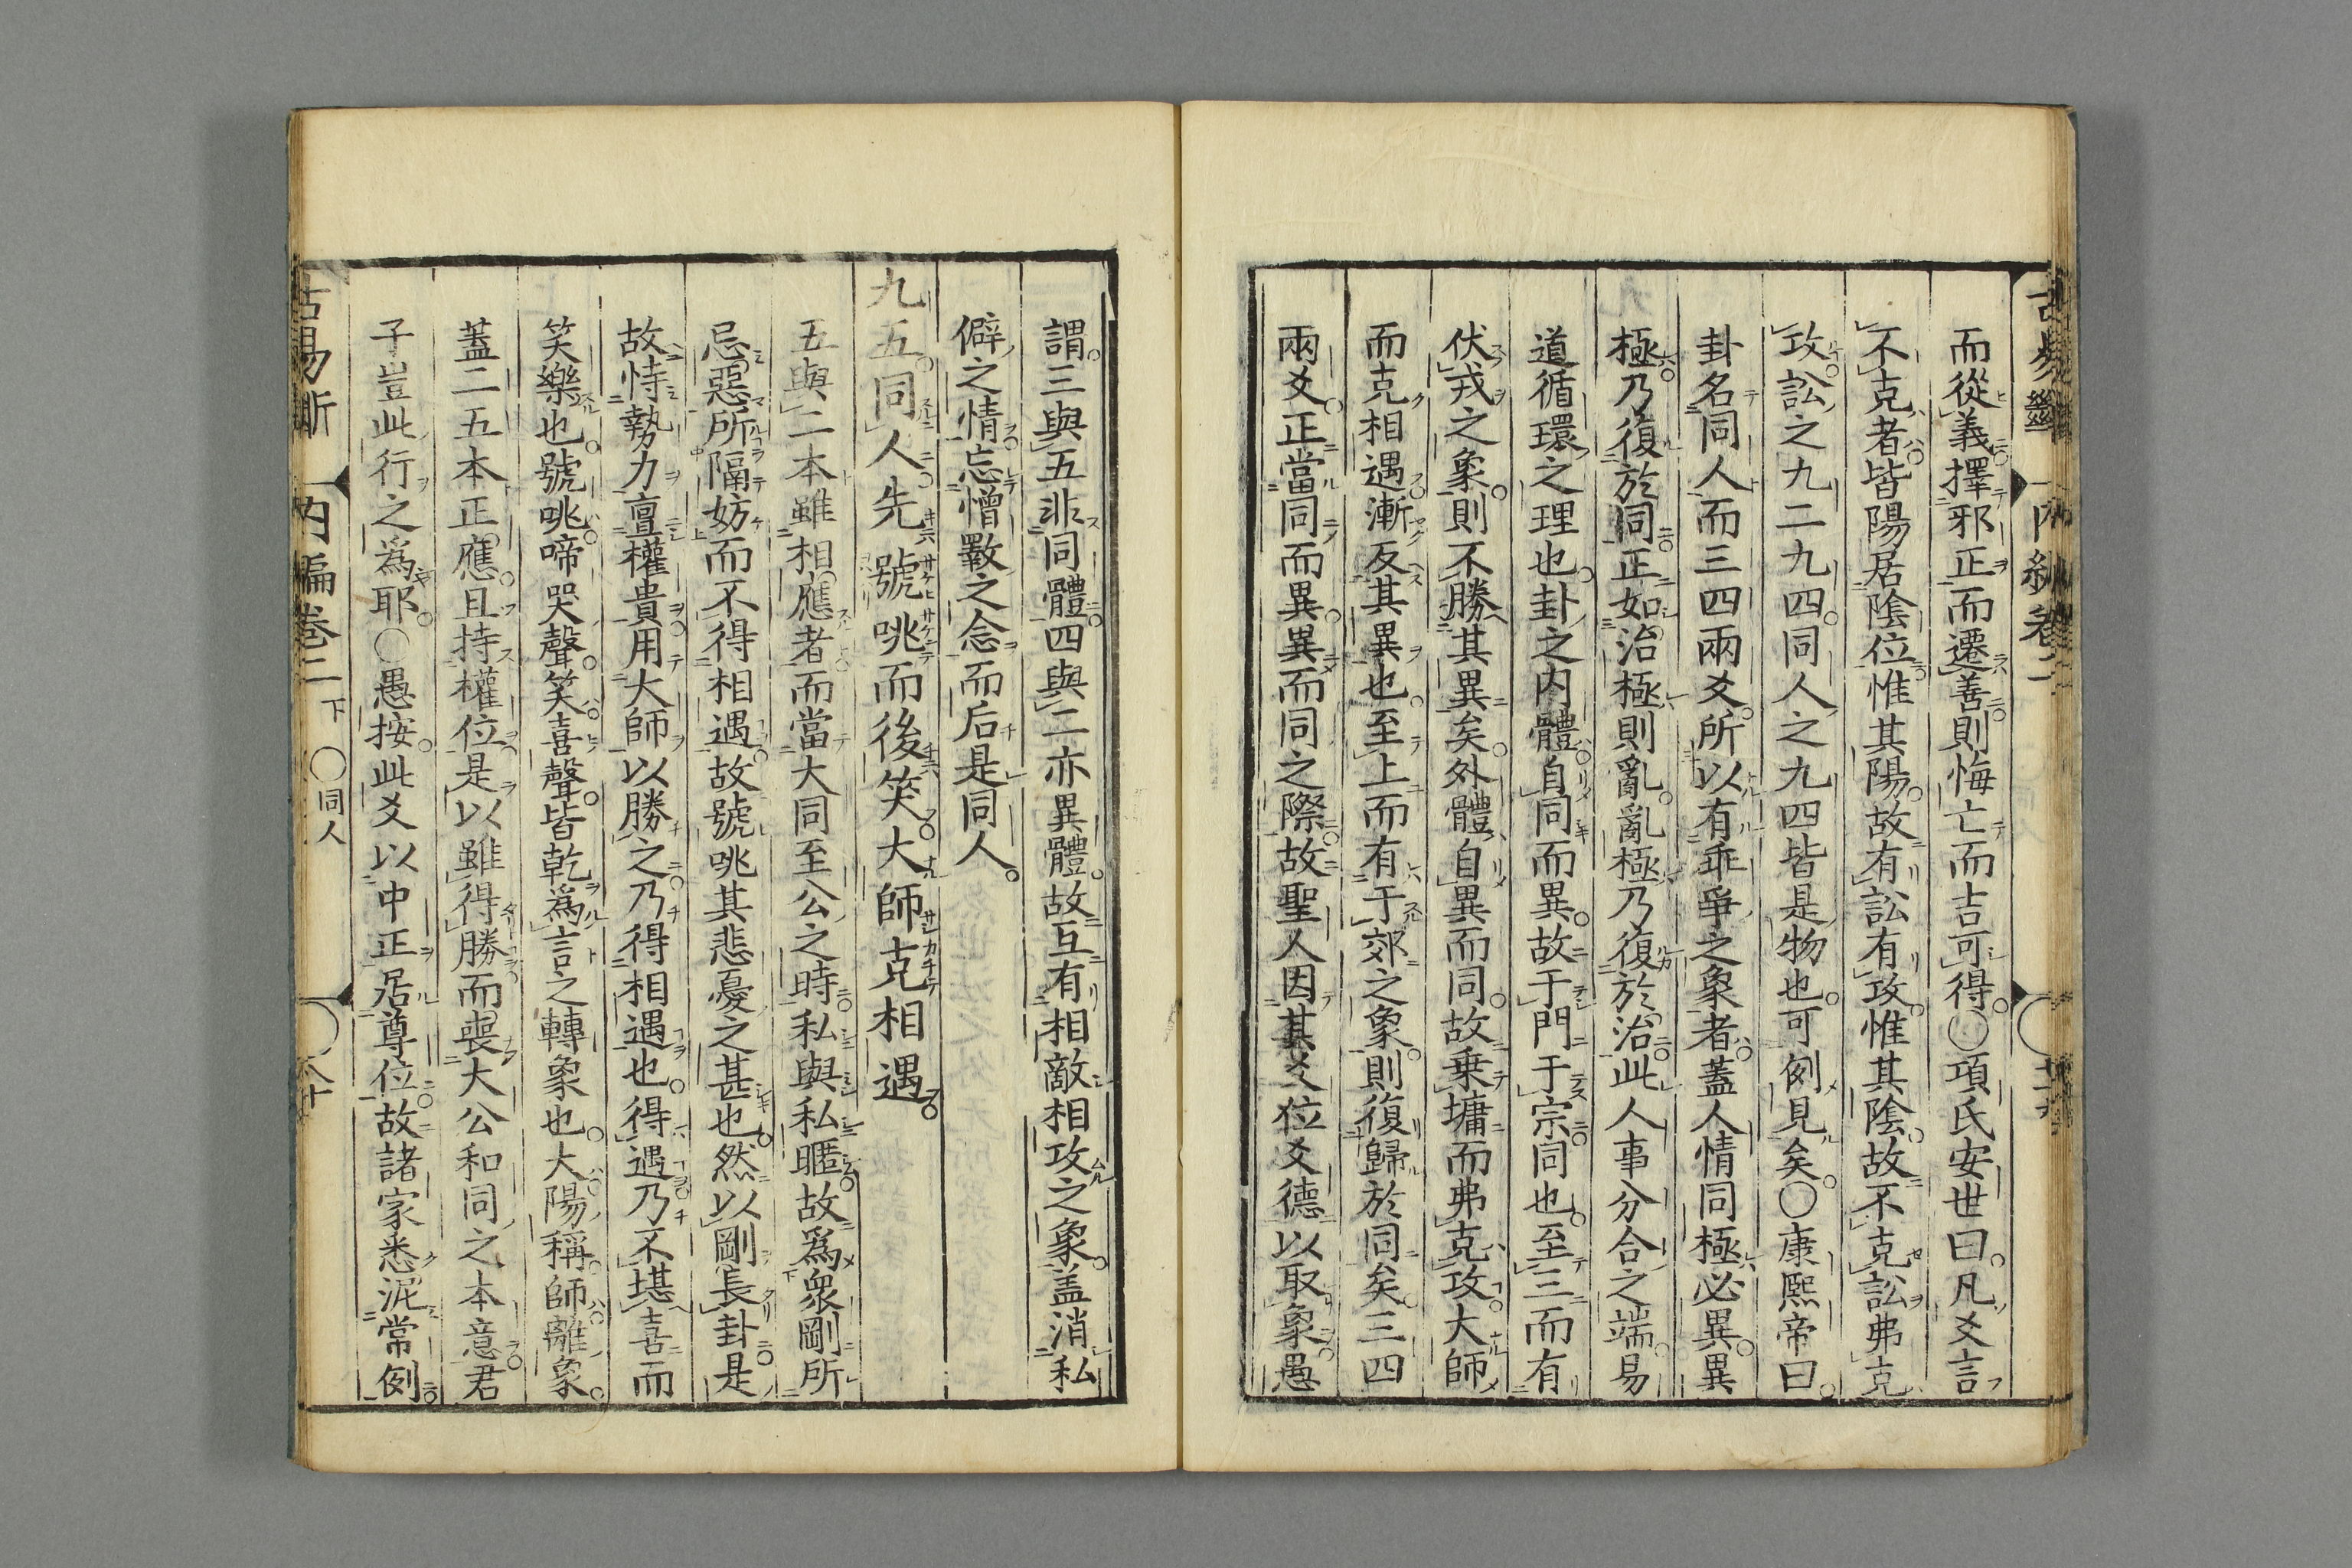 而從義擇邪正而遷善則悔亡而吉可得○項氏安世曰凡爻言
不克者皆陽居陰位惟其陽故有訟有攻惟其陰故不克訟弗克
攻訟之九二九四同人之九四皆是物也可例見矣○康熙帝曰
卦名同人而三四兩爻所以有乖爭之象者蓋人情同極必異異
極乃復於同正如治極則亂亂極乃復於治此人事分合之端易
道循環之理也卦之内體自同而異故于門于宗同也至三而有
伏戎之象則不勝其異矣外體自異而同故乗墉而弗克攻大師
而克相遇漸反其異也至上而有于郊之象則復歸於同矣三四
兩爻正當同而異異而同之際故聖人因其爻位爻德以取象愚
謂三與五非同體四與二亦異體故互有相敵相攻之象盖消私
僻之情忘憎斁之念而后是同人
九五同人先號咷而後笑大師克相遇
五與二本雖相應者而當大同至公之時私與私暱故爲衆剛所
忌惡所隔妨而不得相遇故號咷其悲憂之甚也然以剛長卦是
故恃勢力亶權貴用大師以勝之乃得相遇也得遇乃不堪喜而
笑樂也號咷啼哭聲笑喜聲皆乾爲言之轉象也大陽稱師離象
蓋二五本正應且持權位是以雖得勝而喪大公和同之本意君
子豈此行之爲耶○愚按此爻以中正居尊位故諸家悉泥常例
古易斷 内編卷二 下 ○同人